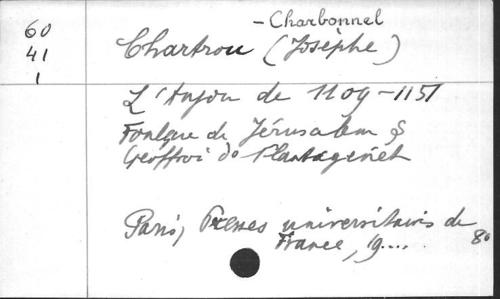 60
41
1
- Charbonnel
Chartrou (Josèphe)
L'Anjou de 1109-1151
Foulque de Jérusalem &
Geoffroi Plantagenet
Paris, Presses universitaires de
France, 19.... 8°